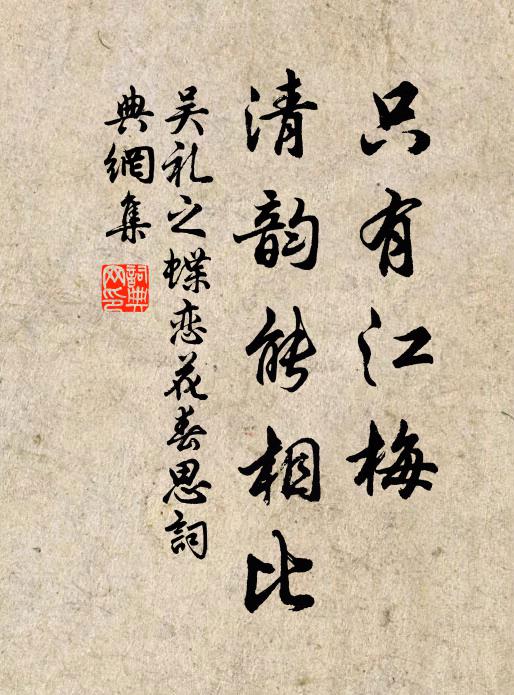 只有江梅
清韵能相比
吴礼之蝶恋花春思词
典網集
詞典網印